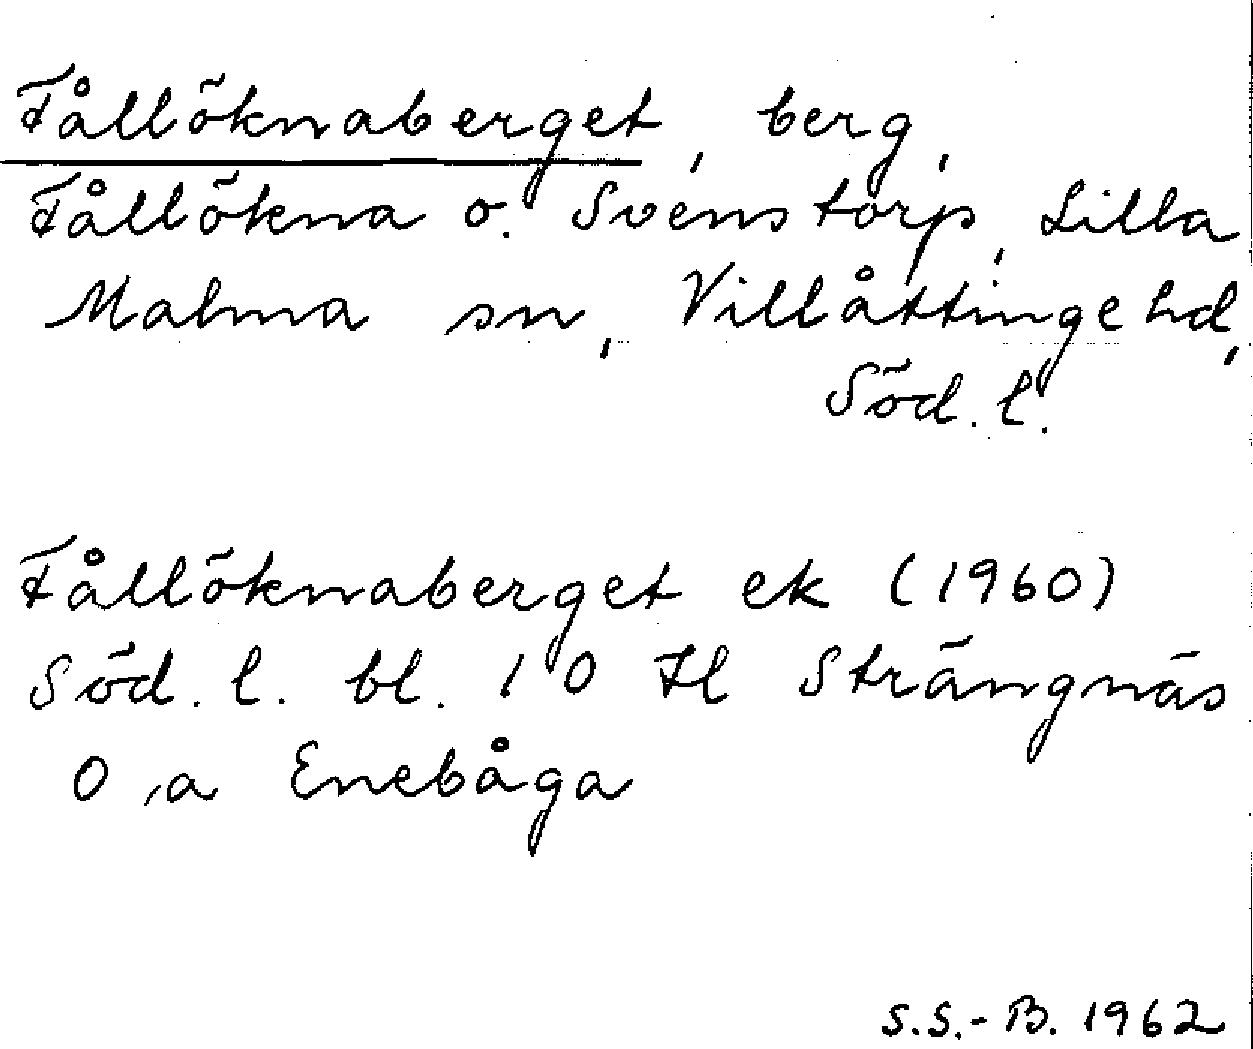 Fållöknaberget, berg,
Fållökna o. Svenstorp, Lilla
Malma sn, Villåttinge hd,
Söd. l.
Fållöknaberget ek (1960)
Söd. l. bl. 10 Il Strängnäs
O, a Enebåga
S.S.-B. 1962